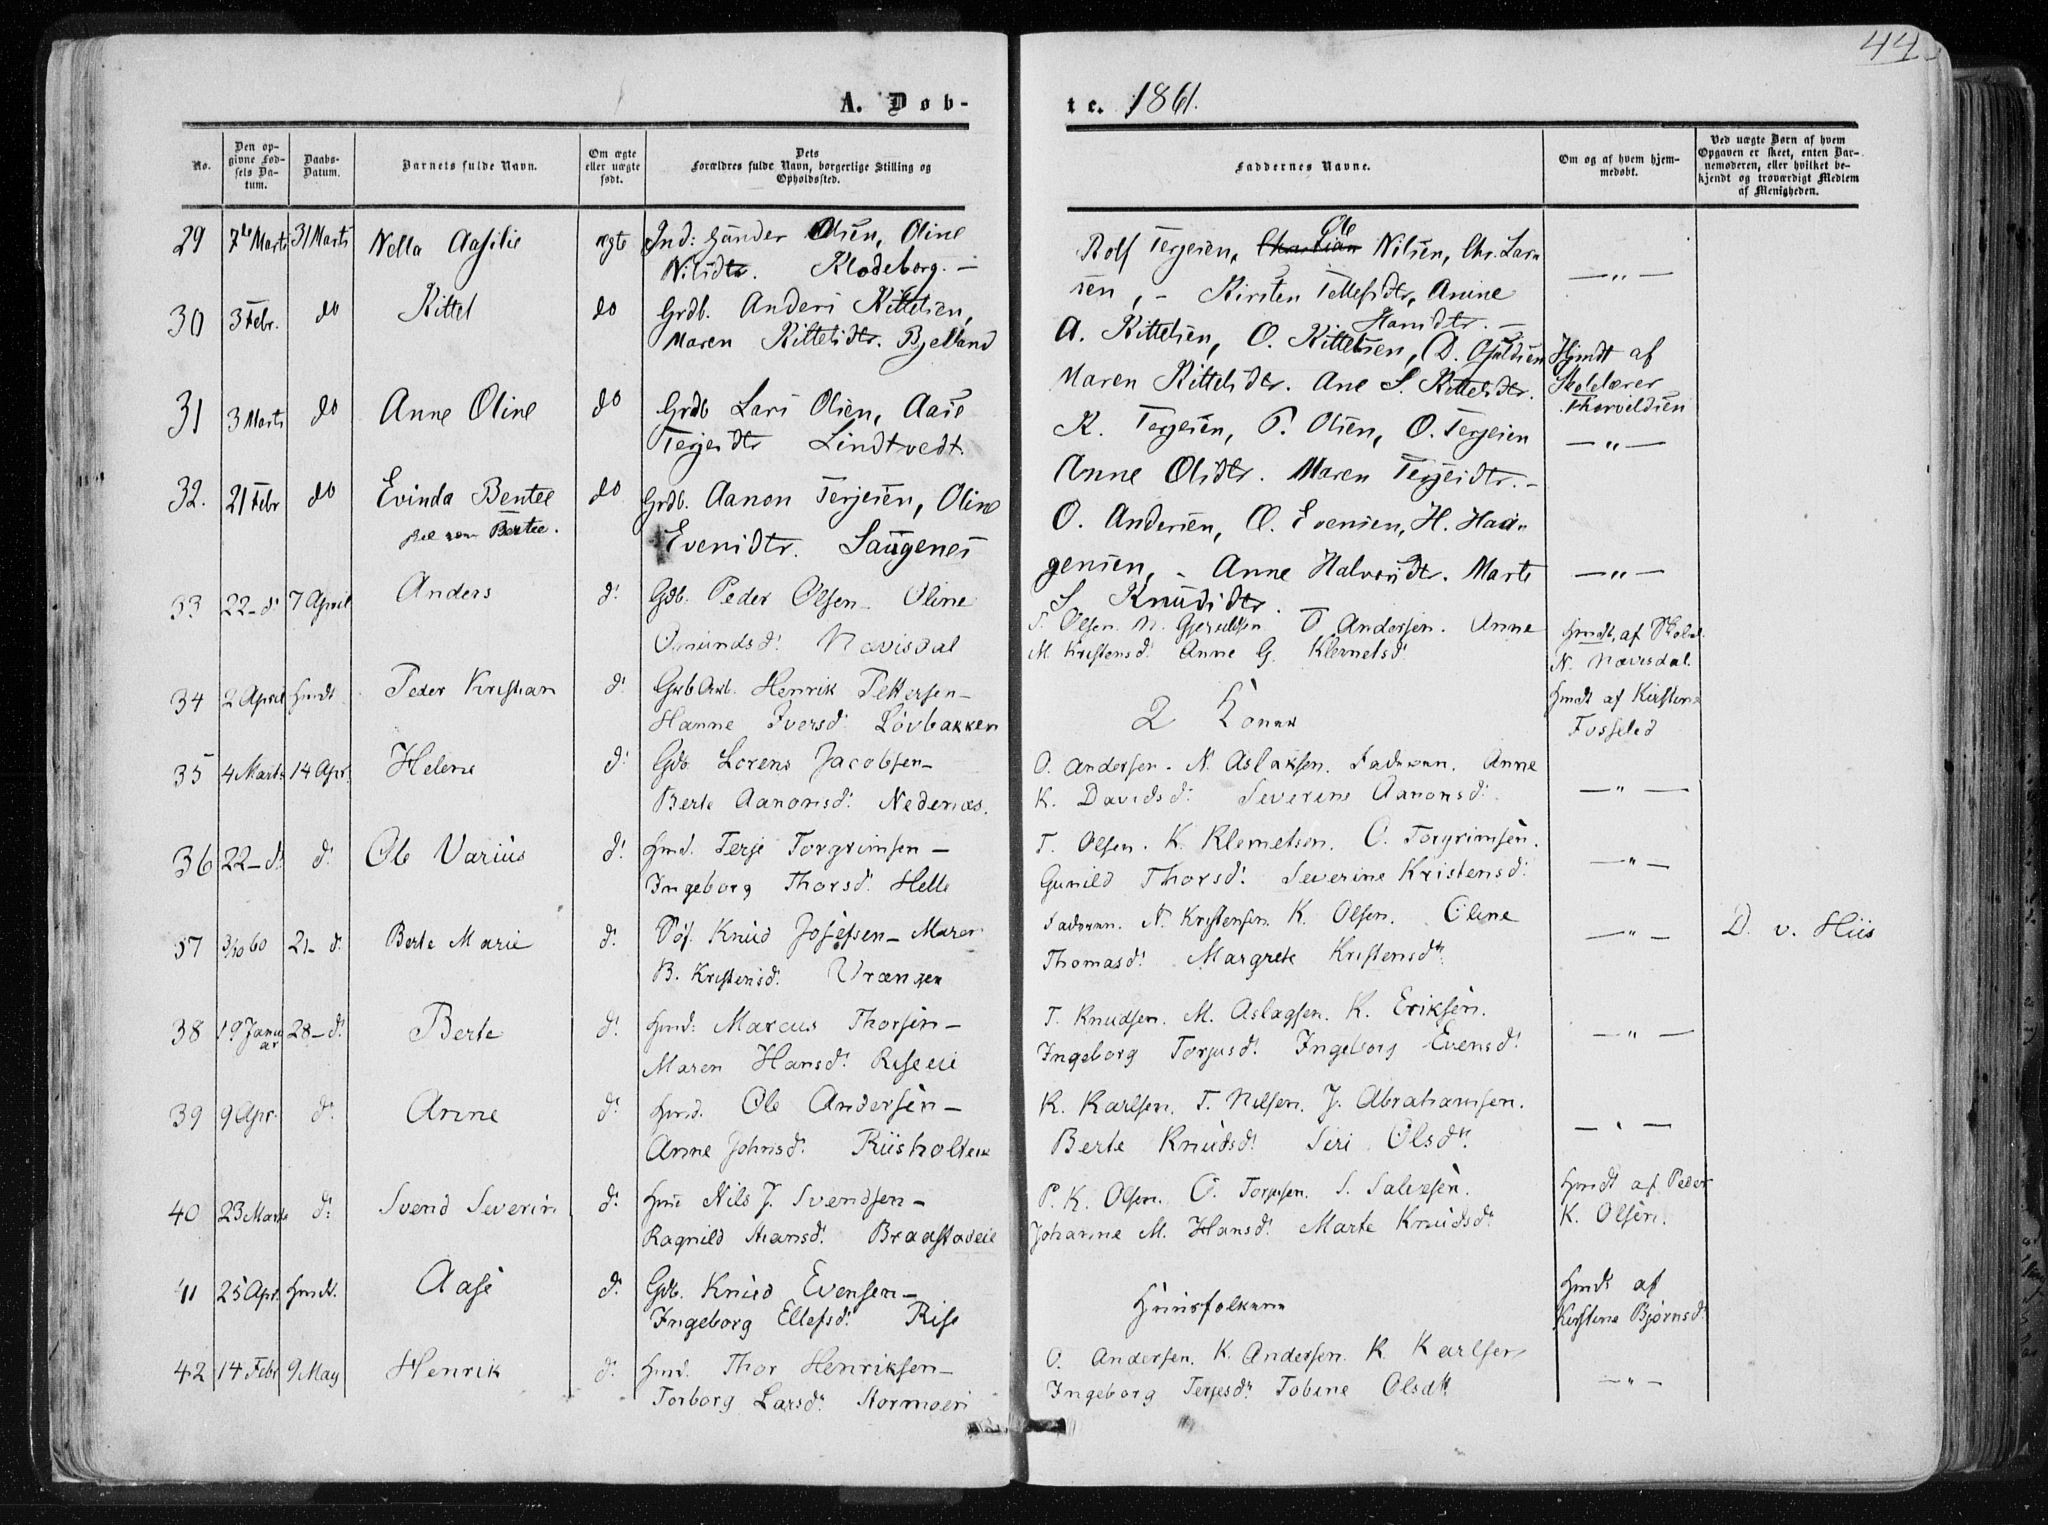 44
A. Døb-
te. 1861.
No.
Den op-
givne Fød-
sels Da-
tum.
Daabs-
Datum.
Barnets fulde Navn.
Om ægte
eller uægte
født.
Dets
Forældres fulde Navn, borgerlige Stilling og
Opholdssted.
Faddernes Navne.
Om og af hvem hjem-
medøbt.
Ved uægte Børn af hvem
Opgaven er skeet, enten Bar-
nemoderen, eller hvilket be-
kjendt og troværdigt Medlem
af Menigheden.
29 7de Marts 31 Marts Nella Aasilie ægte Ind: Gunder Olsen, Oline
Nilsdtr. Klodeborg. —
Rolf Terjesen, Ole Nilsen, Chr. Lar-
sen, - Kirsten Tellefsdtr, Anine
Hansdtr. —
— „ —
30 3 Febr. do Kittel do Grdb. Anders Kittelsen,
Maren Kittelsdtr. Bjelland
A. Kittelsen, O. Kittelsen, D.
Maren Kittelsdtr. Ane S. Kittelsdtr.
Hjmdt af
Skolelærer
Thorveldsen
31 3 Marts do Anne Oline do Grdb Lars Olsen, Aase
Terjesdtr Lindtvedt.
K. Terjesen, P. Olsen, O. Terjesen
Anne Olsdtr. Maren Terjesdtr. -
— „ —
32. 21 Febr do Evinda Bentee do Grdb. Aanon Terjesen, Oline
Bertee.
Evensdtr. Saugenes
O. Andersen, O. Evensen, H. Haa-
gensen, - Anne Halvorsdtr. Marte
S. Knudsdtr.
— „ —
33 22 - d' 7 April Anders d: Gdb. Peder Olsen - Oline
Omundsd: Nævisdal
T. Olsen. N. Gjeruldsen T Andersen. Anne
M. Kristensd: Anne G. Klemetsd:
Hmdt, af Skolel.
N. Nævesdal.
34 2 April Hmdt Peder Kristian d: Henrik Pettersen —
Hanne Iversd: Løvbakken
2 Koner
Hmdt af Kirstene
Fosseled
35 4 Marts 14 Apr. Helene d: Gdb. Lorens Jacobsen —
Berte Aanonsd: Nedenæs.
O. Andersen. N. Aslaksen. Fadrenn. Anne
K. Davidsd: Severine Aanonsd:
— „ —
36 22 - d: d: Ole Varius d: Hmd. Terje Torgrimsen —
Ingeborg Thorsd: Helle
T. Olsen. K. Klemetsen. O. Torgrimsen.
Gunild Thorsd: Severine Kristensd:
— „ —
37 3/10 60 21 - d. Berte Marie d: Søf. Knud Josefsen — Maren
B. Kristensd: Vrængen
Fadrenn. N. Kristensen. K. Olsen. Oline
Thomasd: Margrete Kristensdtr
— „ —
D. v. Hiis
38 19 Janu
ar 28 - d: Berte d: Hmd: Marcus Thorsen —
Maren Hansd: Riseeie
T. Knudsen. M. Aslagsen. K. Eriksen.
Ingeborg Torjusd: Ingeborg Evensd:
— „ —
39 9 Apr. d: Anne d: Hmd. Ole Andersen —
Anne Johnsd: Riisholten
K. Karlsen. T. Nilsen. J. Abrahamsen.
Berte Knudsd: Siri Olsdtr.
— „ —
40 23 Marts d: Svend Severin d: Hmd Nils J. Svendsen —
Ragnild Hansd: Braastadeie
P. K. Olsen. O. Torjusen. S. Salvesen.
Johanne M. Hansd: Marte Knudsd:
Hmdt af Peder
K. Olsen.
41 25 Apr. Hmdt. Aase d: Gdb. Knud Evensen —
Ingeborg Ellefsd: Rise
Huusfolkene
Hmdt af
Kirstine Bjørnsd:
42 14 Febr 9 May Henrik d: Hmd. Thor Henriksen —
Torborg Larsd: Stormoen
O. Andersen. K. Andersen. K Karlsen
Ingeborg Terjesd: Tobine Olsdtr
— „ —